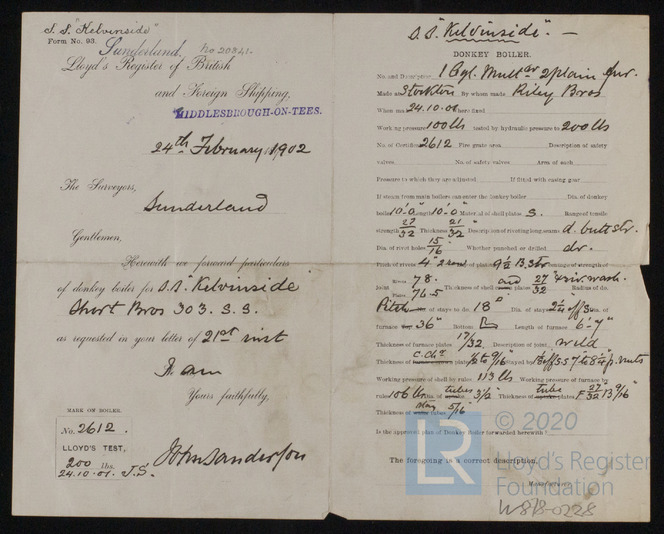 S.S. "Kelvinside"
Form No. 93.
Sunderland, No 20841.
Lloyd's Register of British
and Foreign Shipping,
MIDDLESBROUGH-ON-TEES.
24th February, 1902
The Surveyors,
Sunderland
Gentlemen,
Herewith we forward particulars
of donkey boiler for S.S. "Kelvinside"
Short Bros 303. S.S.
as requested in your letter of 21st inst
I am
Yours faithfully,
John Sanderson
MARK ON BOILER.
No. 2612.
LLOYD'S TEST,
200 lbs.
24.10.01. J.S.
S.S. "Kelvinside". —
DONKEY BOILER.
No. and Description 1 Cyl. Mult 2 plain fur.
Made at Stockton By whom made Riley Bros
When made 24.10.01 where fixed
Working pressure 100 lbs tested by hydraulic pressure to 200 lbs
No. of Certificate 2612 Fire grate area Description of safety
valves No. of safety valves Area of each
Pressure to which they are adjusted If fitted with easing gear
If steam from main boilers can enter the donkey boiler Dia. of donkey
boiler 10'-0" Length 10'-0" Material of shell plates S. Range of tensile
strength 27/32 Thickness 21/32" Description of riveting long seams d. butt str.
Dia. of rivet holes 15/16" Whether punched or drilled dr.
Pitch of rivets 4" 2 row of plating 9½ B. Str Percentage of strength of
Joint Rivets 78. Plate 76.5 Thickness of shell plates and 27/32" Radius of do.
Pitch of stays to do. 18" Dia. of stays
furnace 36" Bottom Length of furnace 6'-7"
Thickness of furnace plates 17/32 Description of joint, weld
Thickness of c. ch. plates ½ to 9/16" Stayed by
Working pressure of shell by rules 113 lbs Working pressure of furnace by
rules 106 lbs Dia. of tubes 3½" Thickness of tube plates F 27/32 B 9/16"
Thickness of stay tubes 5/16"
Is the approved plan of Donkey Boiler forwarded herewith
The foregoing is a correct description.
Manufacturer.
© 2020
LR
Lloyd's Register
Foundation
W878-0228